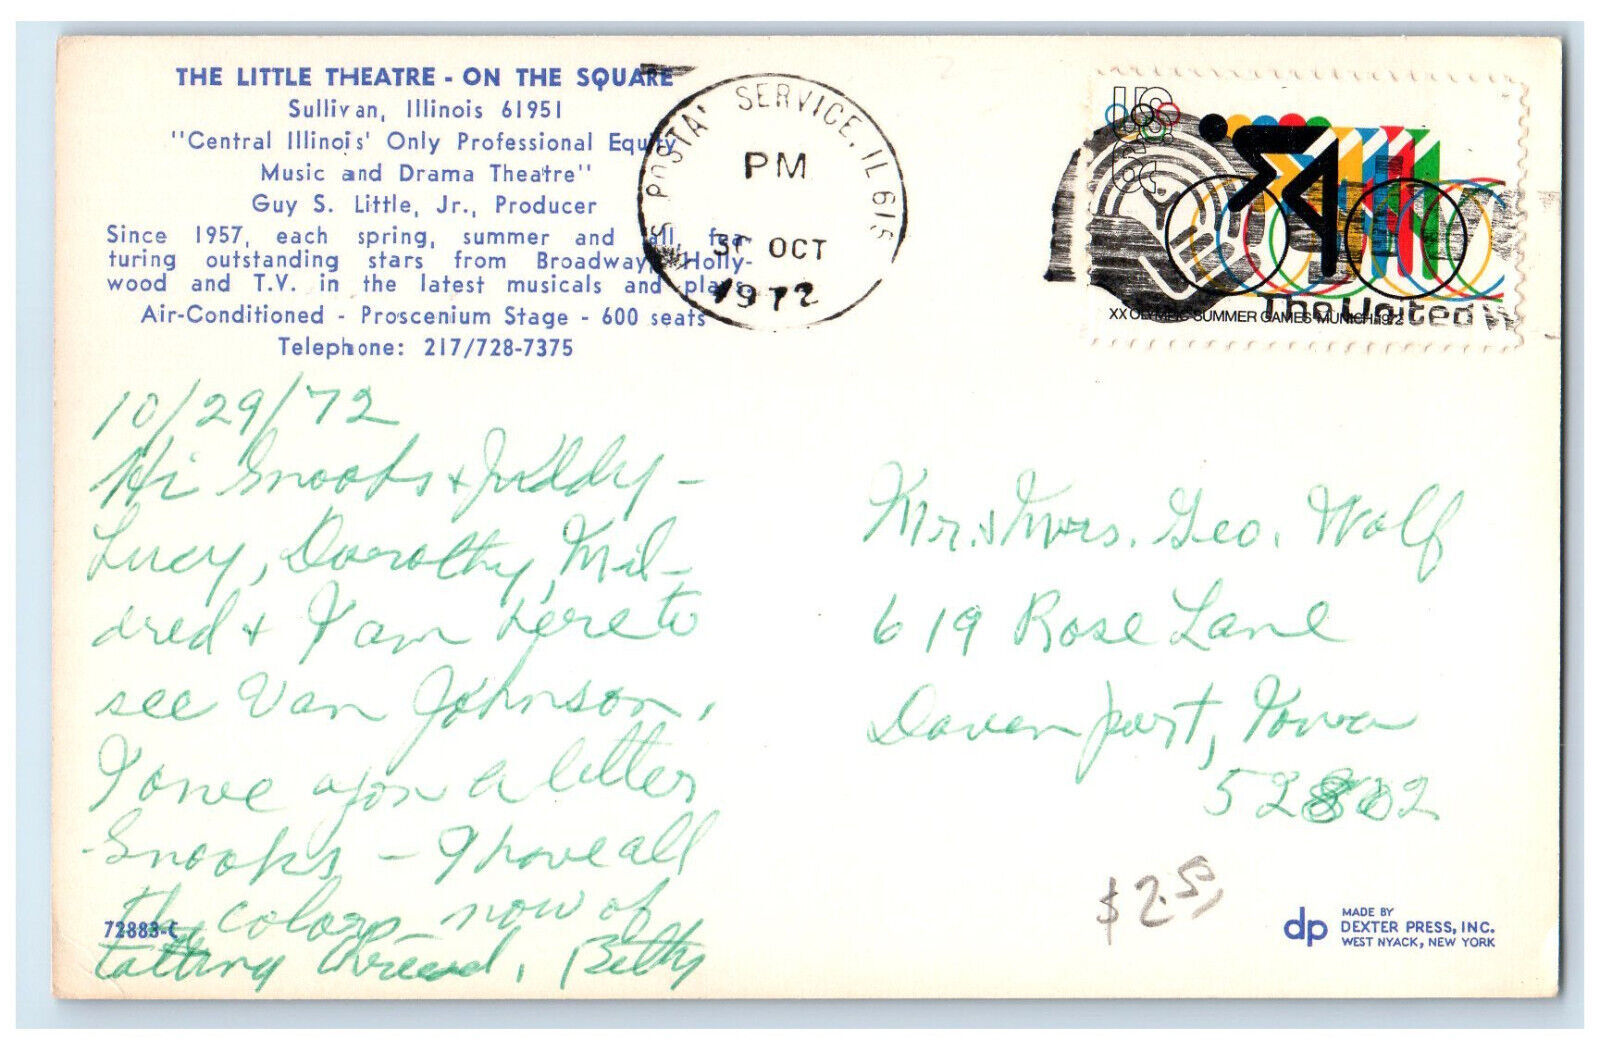 THE LITTLE THEATRE - ON THE SQUARE
Sullivan, Illinois 61951
"Central Illinois' Only Professional Equity
Music and Drama Theatre"
Guy S. Little, Jr., Producer
Since 1957, each spring, summer and fall fea-
turing outstanding stars from Broadway, Holly-
wood and T.V. in the latest musicals and plays.
Air-Conditioned - Proscenium Stage - 600 seats
Telephone: 217/728-7375
US POSTAL SERVICE, IL 615
PM
OCT
1972
US
XX OLYMPIC SUMMER GAMES MUNICH 1972
The United W
10/29/72
Hi Snooks &
Lucy, Dorothy, Mil-
dred & I am here to
see Van Johnson,
I owe you a letter
Snooks - I have all
the colors now of
tatting thread. Betty
Mr. & Mrs. Geo. Wolf
619 Rose Lane
Davenport, Iowa
52802
$2.50
72883-C
dp
MADE BY
DEXTER PRESS, INC.
WEST NYACK, NEW YORK